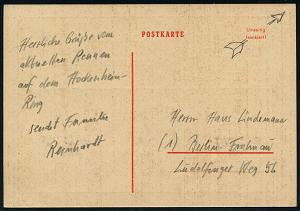 Herzliche Grüße vom
aktuellen Rennen
auf dem Hockenheim-
Ring
sendet Familie
Reinhardt
POSTKARTE
Herrn Hans Lindemann
(1) Berlin-Frohnau
Weg 56